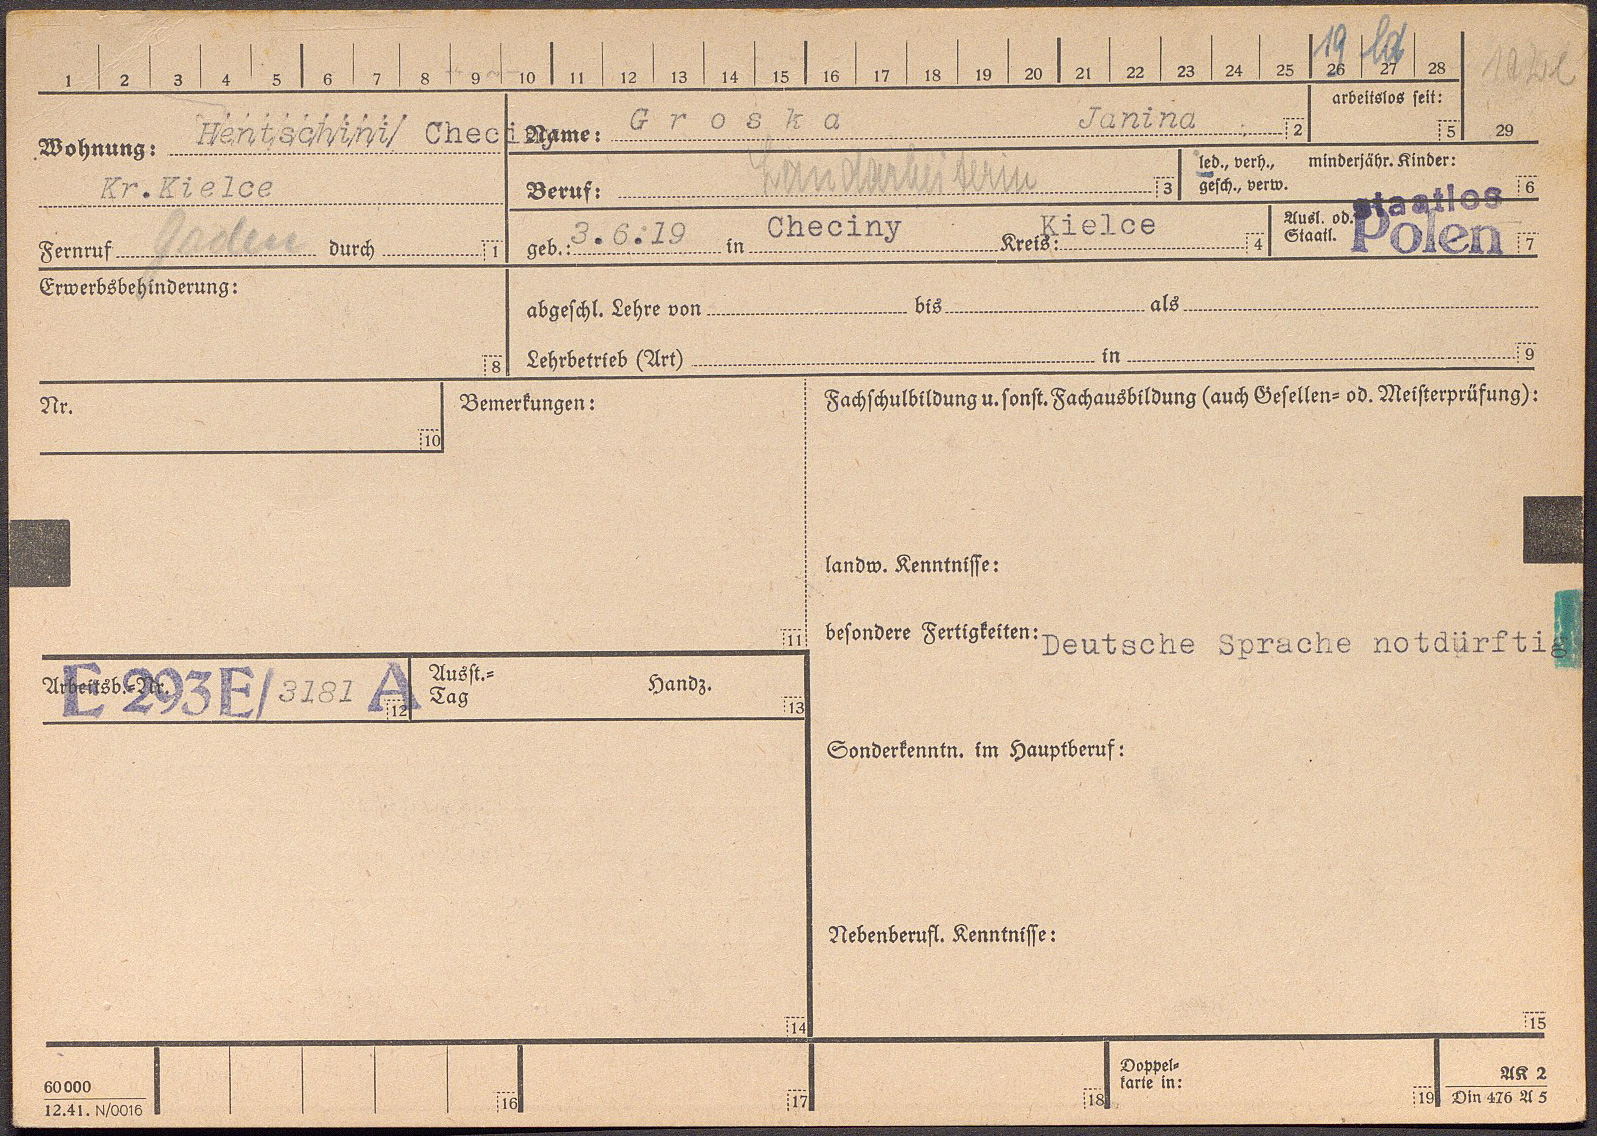 1 2 3 4 5 6 7 8 9 10 11 12 13 14 15 16 17 18 19 20 21 22 23 24 25 26 27 28
19
arbeitslos seit:
5 29
Wohnung: Hentschini/ Checi
Kr.Kielce
Fernruf Gaden durch 1
Name: Groska Janina 2
Beruf: Landarbeiterin 3
led., verh., minderjähr. Kinder:
gesch., verw. 6
geb.: 3.6.19 in Checiny Kreis: Kielce 4
Ausl. od. staatlos
Staatl. Polen 7
Erwerbsbehinderung:
8
abgeschl. Lehre von bis als
Lehrbetrieb (Art) in 9
Nr.
10
Bemerkungen:
11
Fachschulbildung u. sonst. Fachausbildung (auch Gesellen- od. Meisterprüfung):
landw. Kenntnisse:
besondere Fertigkeiten: Deutsche Sprache notdürftig
Arbeitsb.-Nr. E 293E/3181 A 12
Ausst.-
Tag Handz. 13
Sonderkenntn. im Hauptberuf:
Nebenberufl. Kenntnisse:
14 15
60000
12.41. N/0016
16 17 18
Doppel-
karte in: 19
AK 2
Din 476 A 5